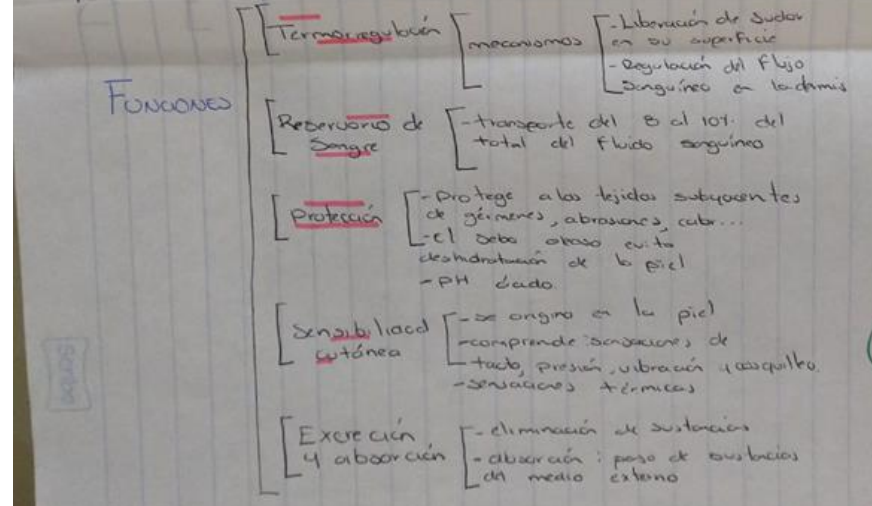 Termorregulación
mecanismos
- Liberación de sudor
en su superficie
- Regulación del flujo
Sanguíneo en la dermis
FUNCIONES
Reservorio de
Sangre
- transporte del 8 al 10% del
total del fluido sanguíneo
Protección
- Protege a los tejidos subyacentes
de gérmenes, abrasiones, calor...
- el sebo graso evita
deshidratación de la piel
- PH ácido
Sensibiliacd
cutánea
- se origina en la piel
- comprende sensaciones de
tacto, presión, vibración y cosquilleo.
- sensaciones térmicas
Excreción
y absorción
- eliminación de sustancias
- absorción: paso de sustancias
del medio externo
Scribe